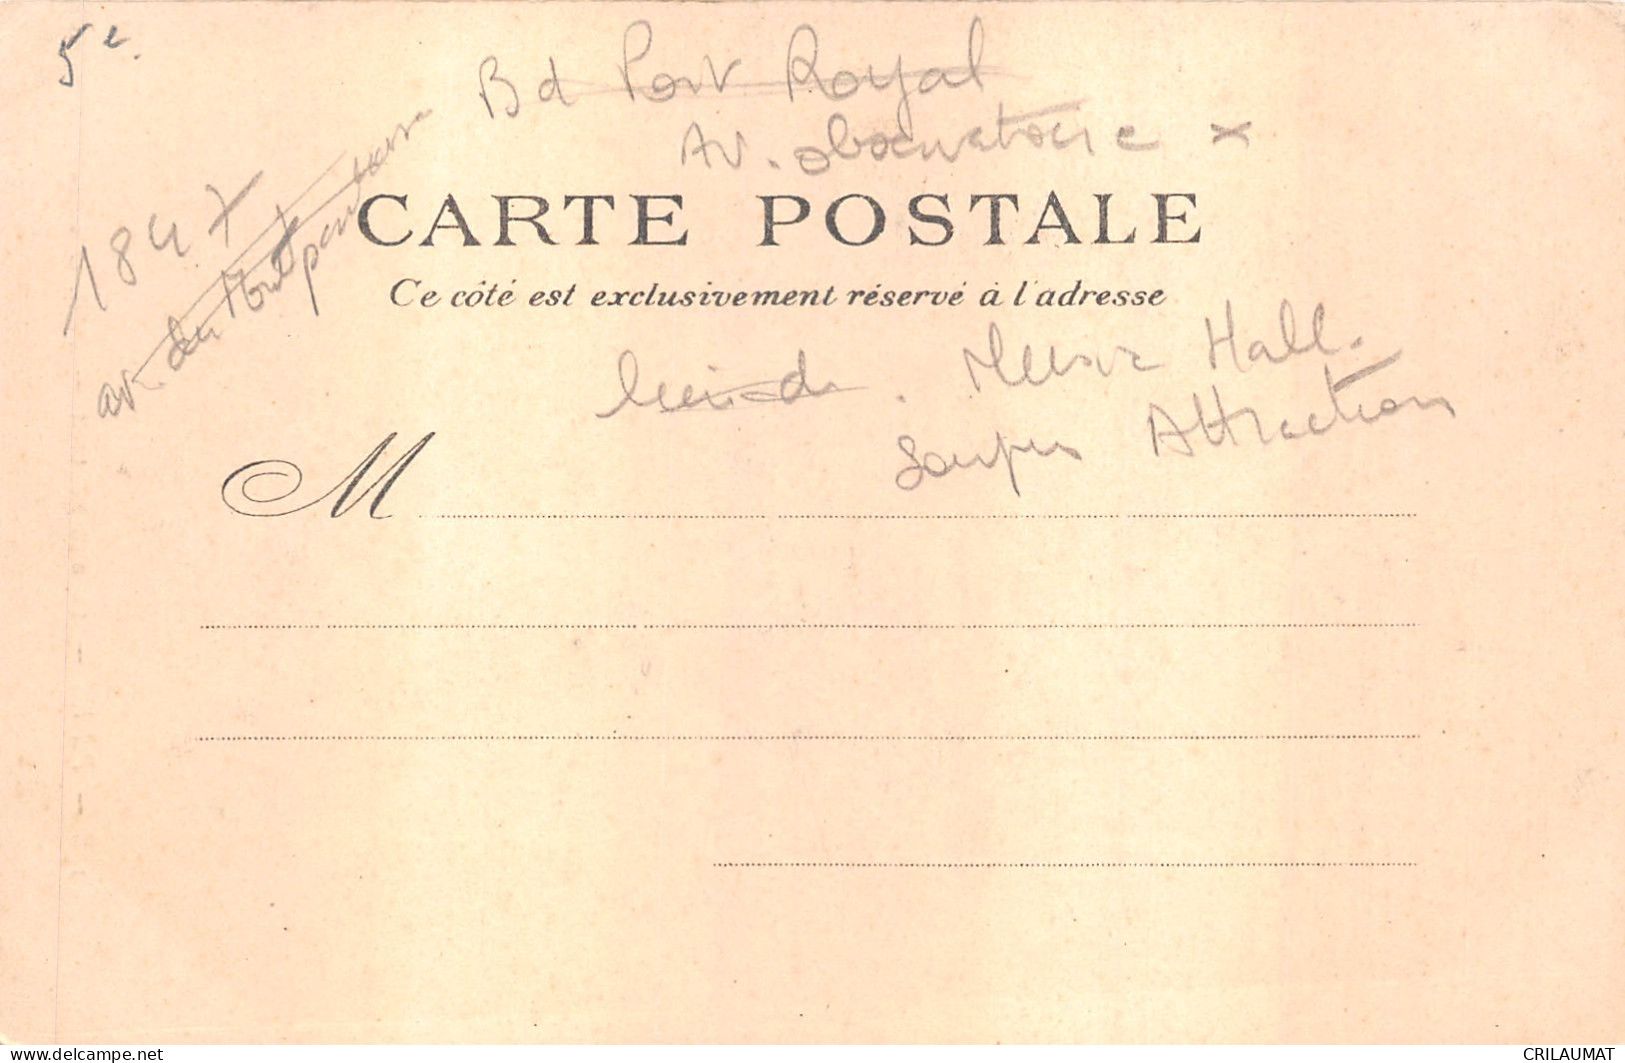 5e.
Bd Port Royal
Av. observatoire x
1847
av. du Montparnasse
CARTE POSTALE
Ce côté est exclusivement réservé à l'adresse
Music Hall.
Soupers Attraction
M
CRILAUMAT